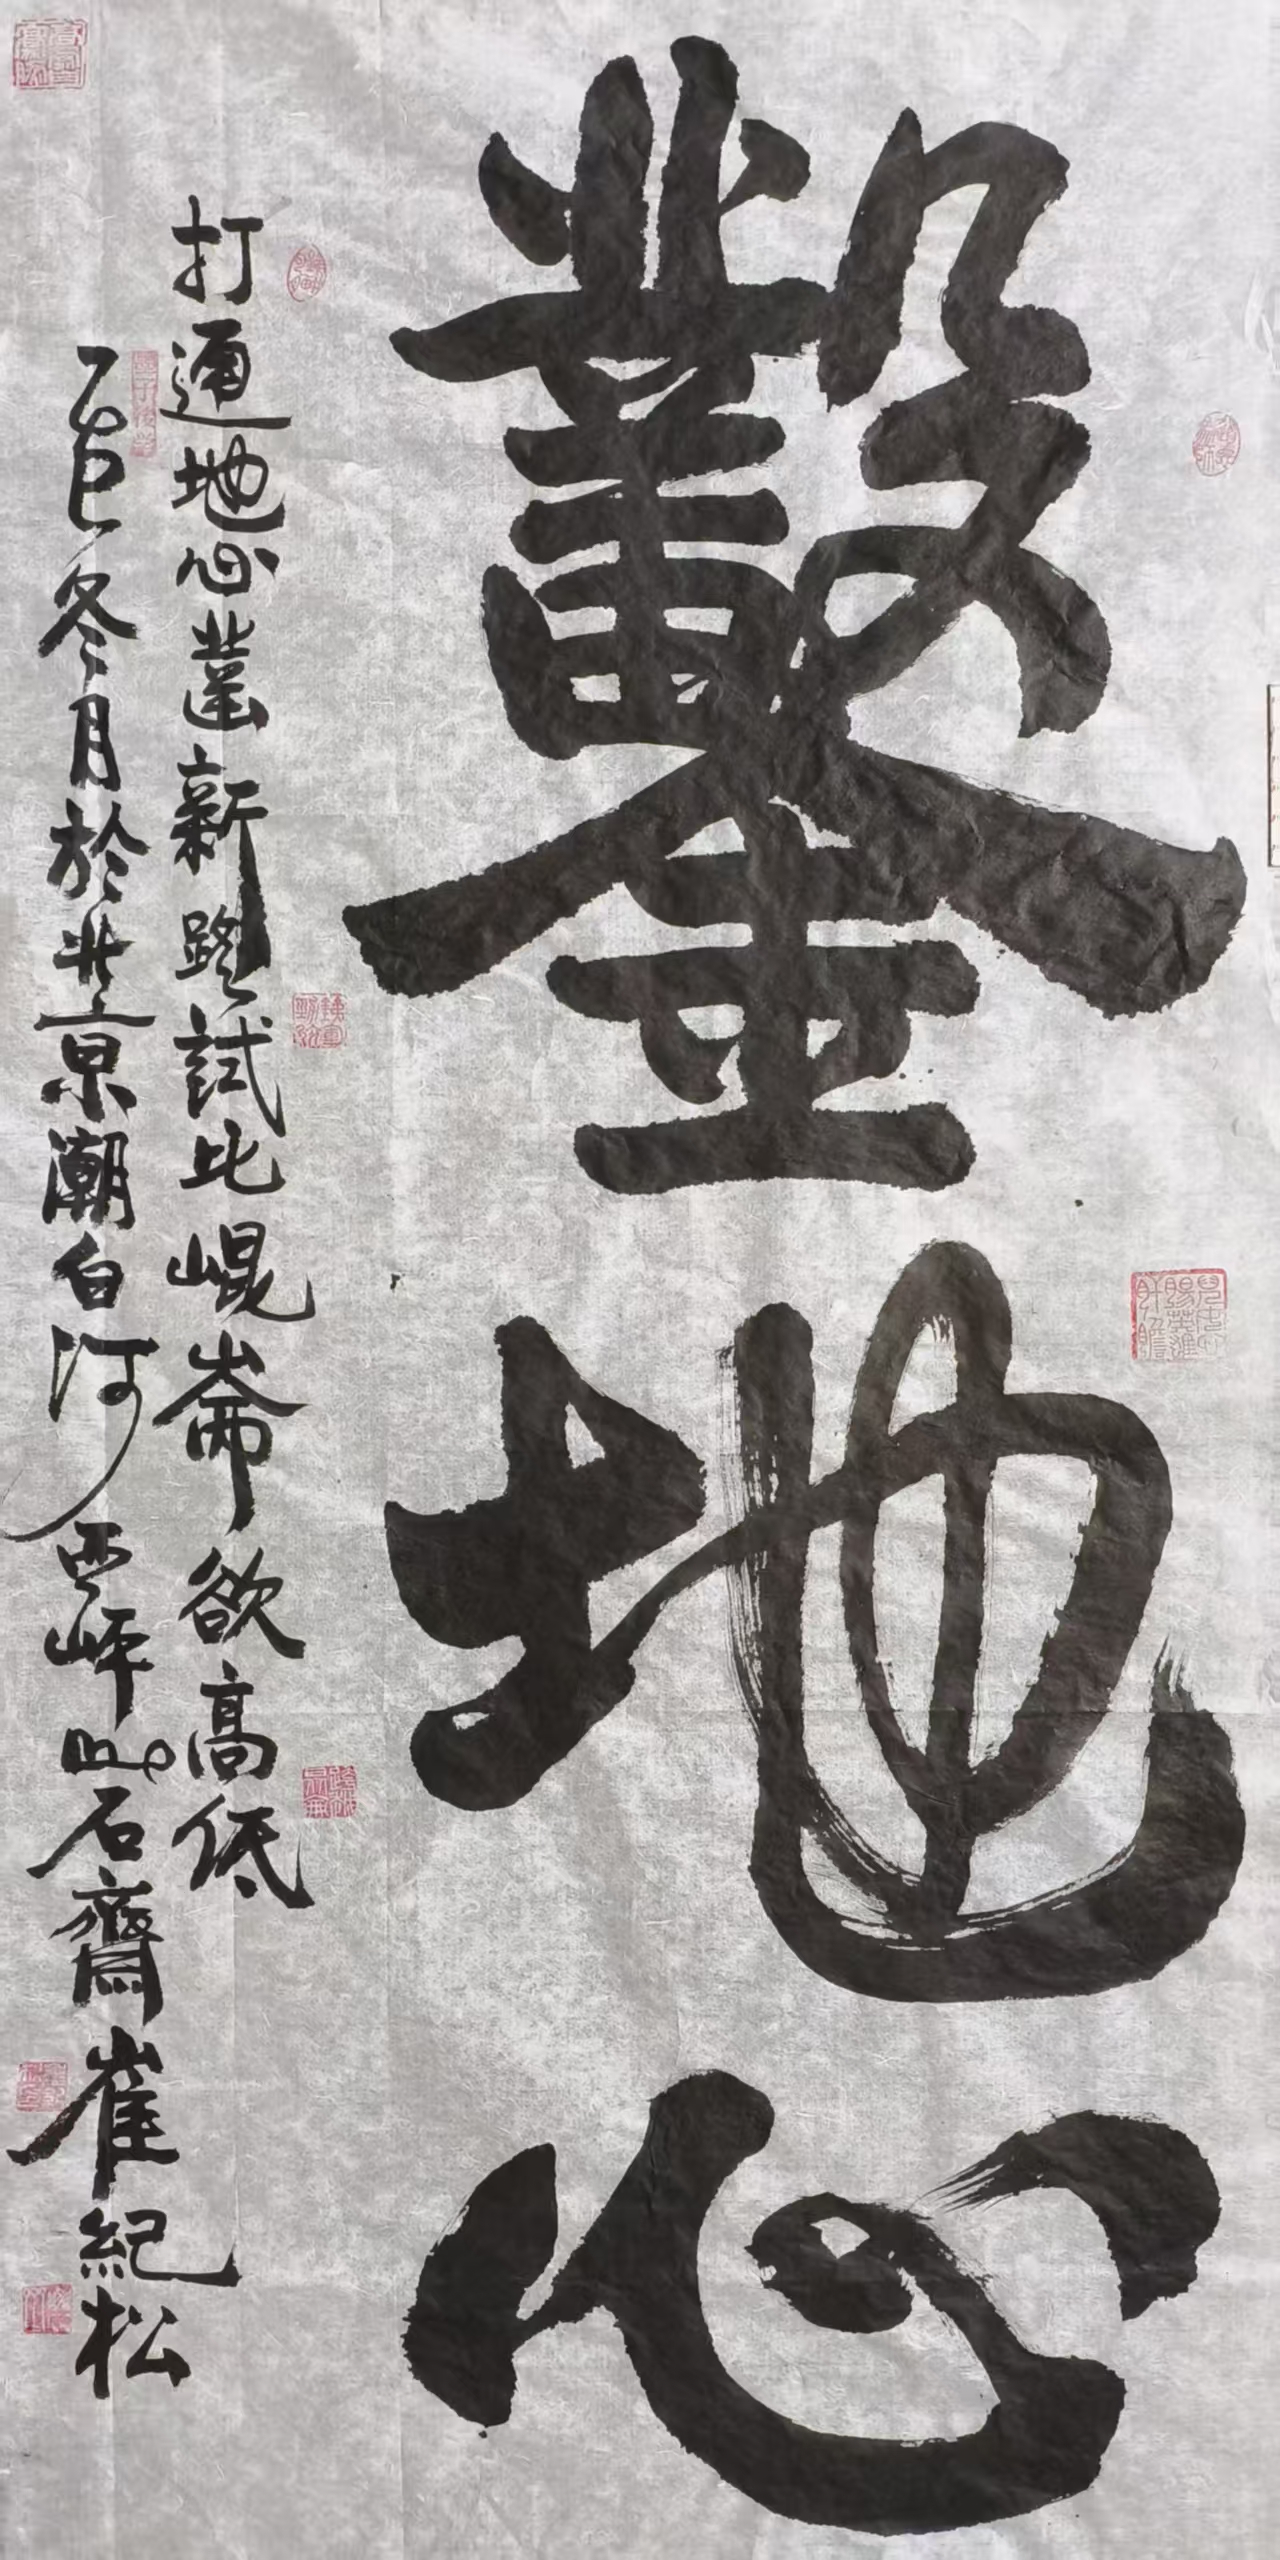 鑿地心
打通地心凿新路試比崐崙欲高低
乙巳冬月於北京潮白河西岸石齋崔紀松